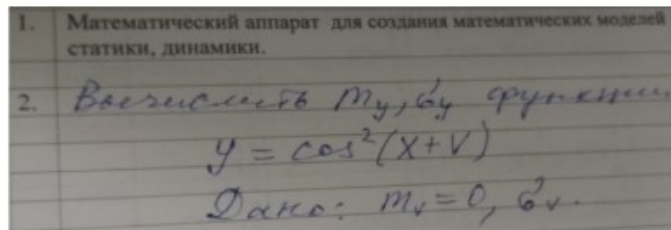 1. Математический аппарат для создания математических моделей
статики, динамики.
2. Вычислить m_y, σ_y функции
y = cos²(X+V)
Дано: m_v = 0, σ_v.